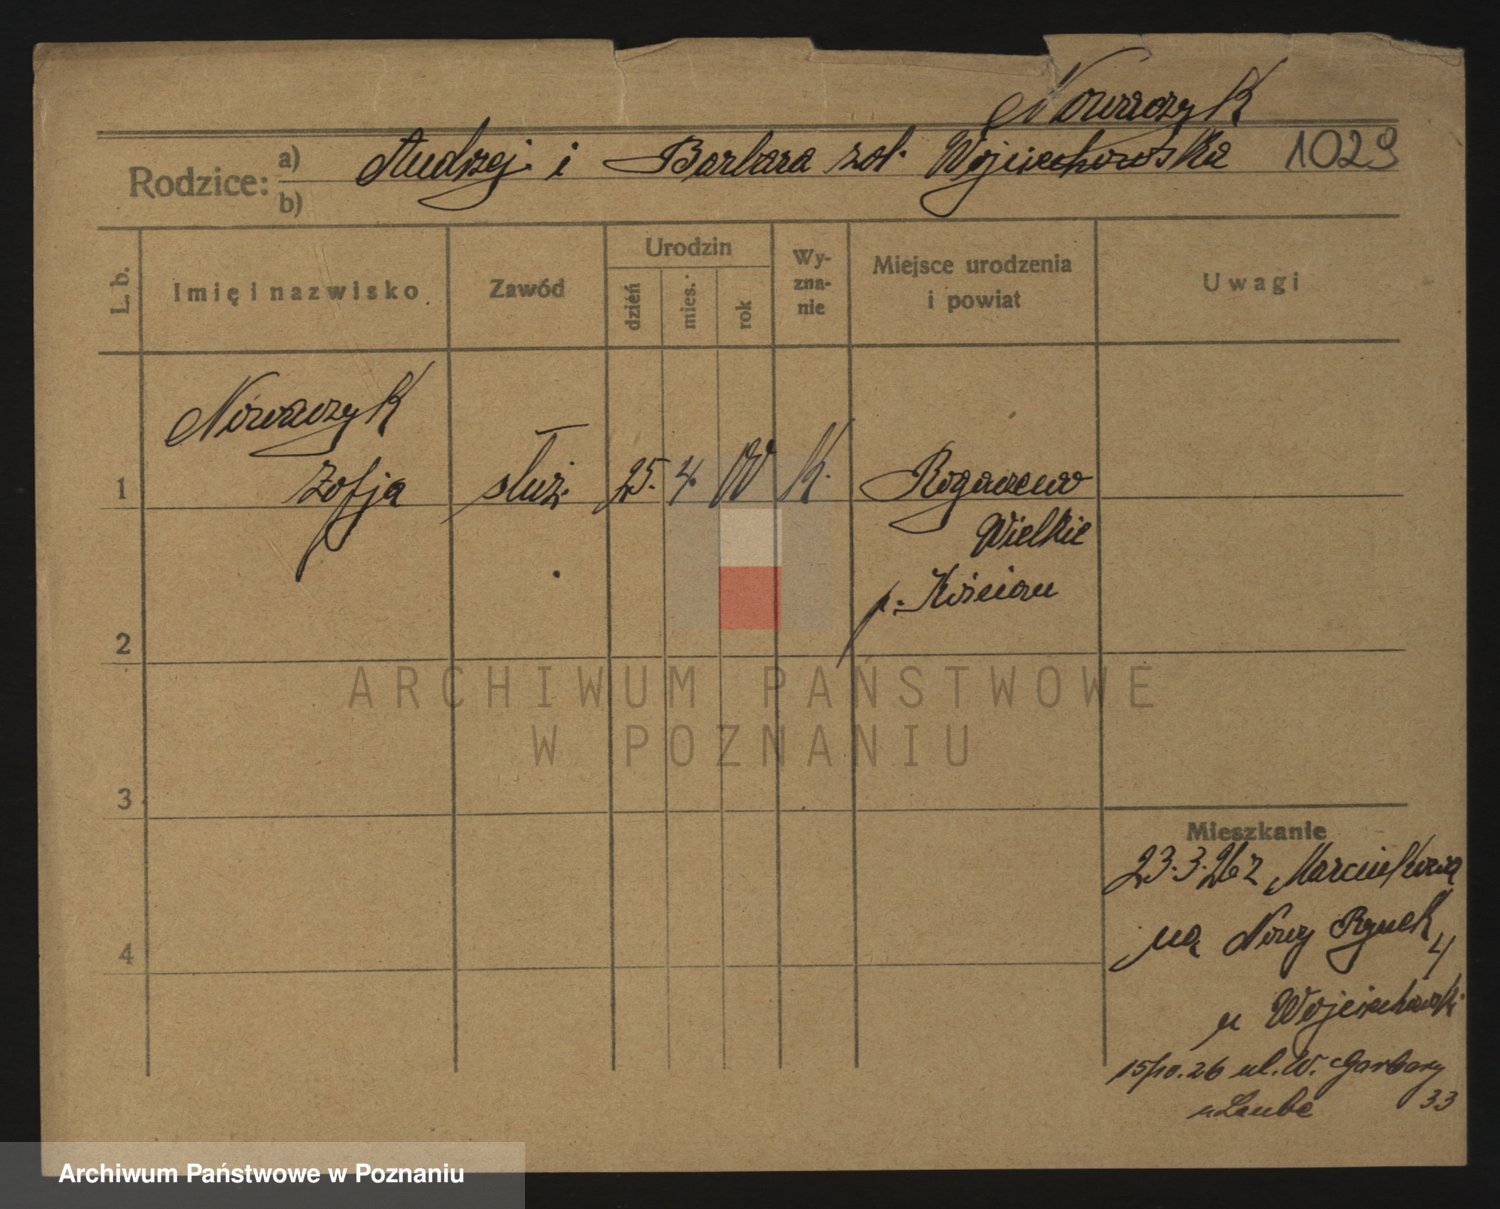 Nowaczyk
Rodzice: a) Andrzej i Barbara zd. Wojciechowska 1029
b)
L. b.
Imię i nazwisko
Zawód
Urodzin
dzień
mies.
rok
Wy-
zna-
nie
Miejsce urodzenia
i powiat
Uwagi
Nowaczyk
1 Zofja służ. 25. 4. 00 k. Rogaczewo
Wielkie
p. Kościan
2
3
4
Mieszkanie
23.3.26 z
na Nowy Rynek
4
u Wojciechowski
15/10.26 ul. W. Garbary
u Laube 33
ARCHIWUM PAŃSTWOWE
W POZNANIU
Archiwum Państwowe w Poznaniu